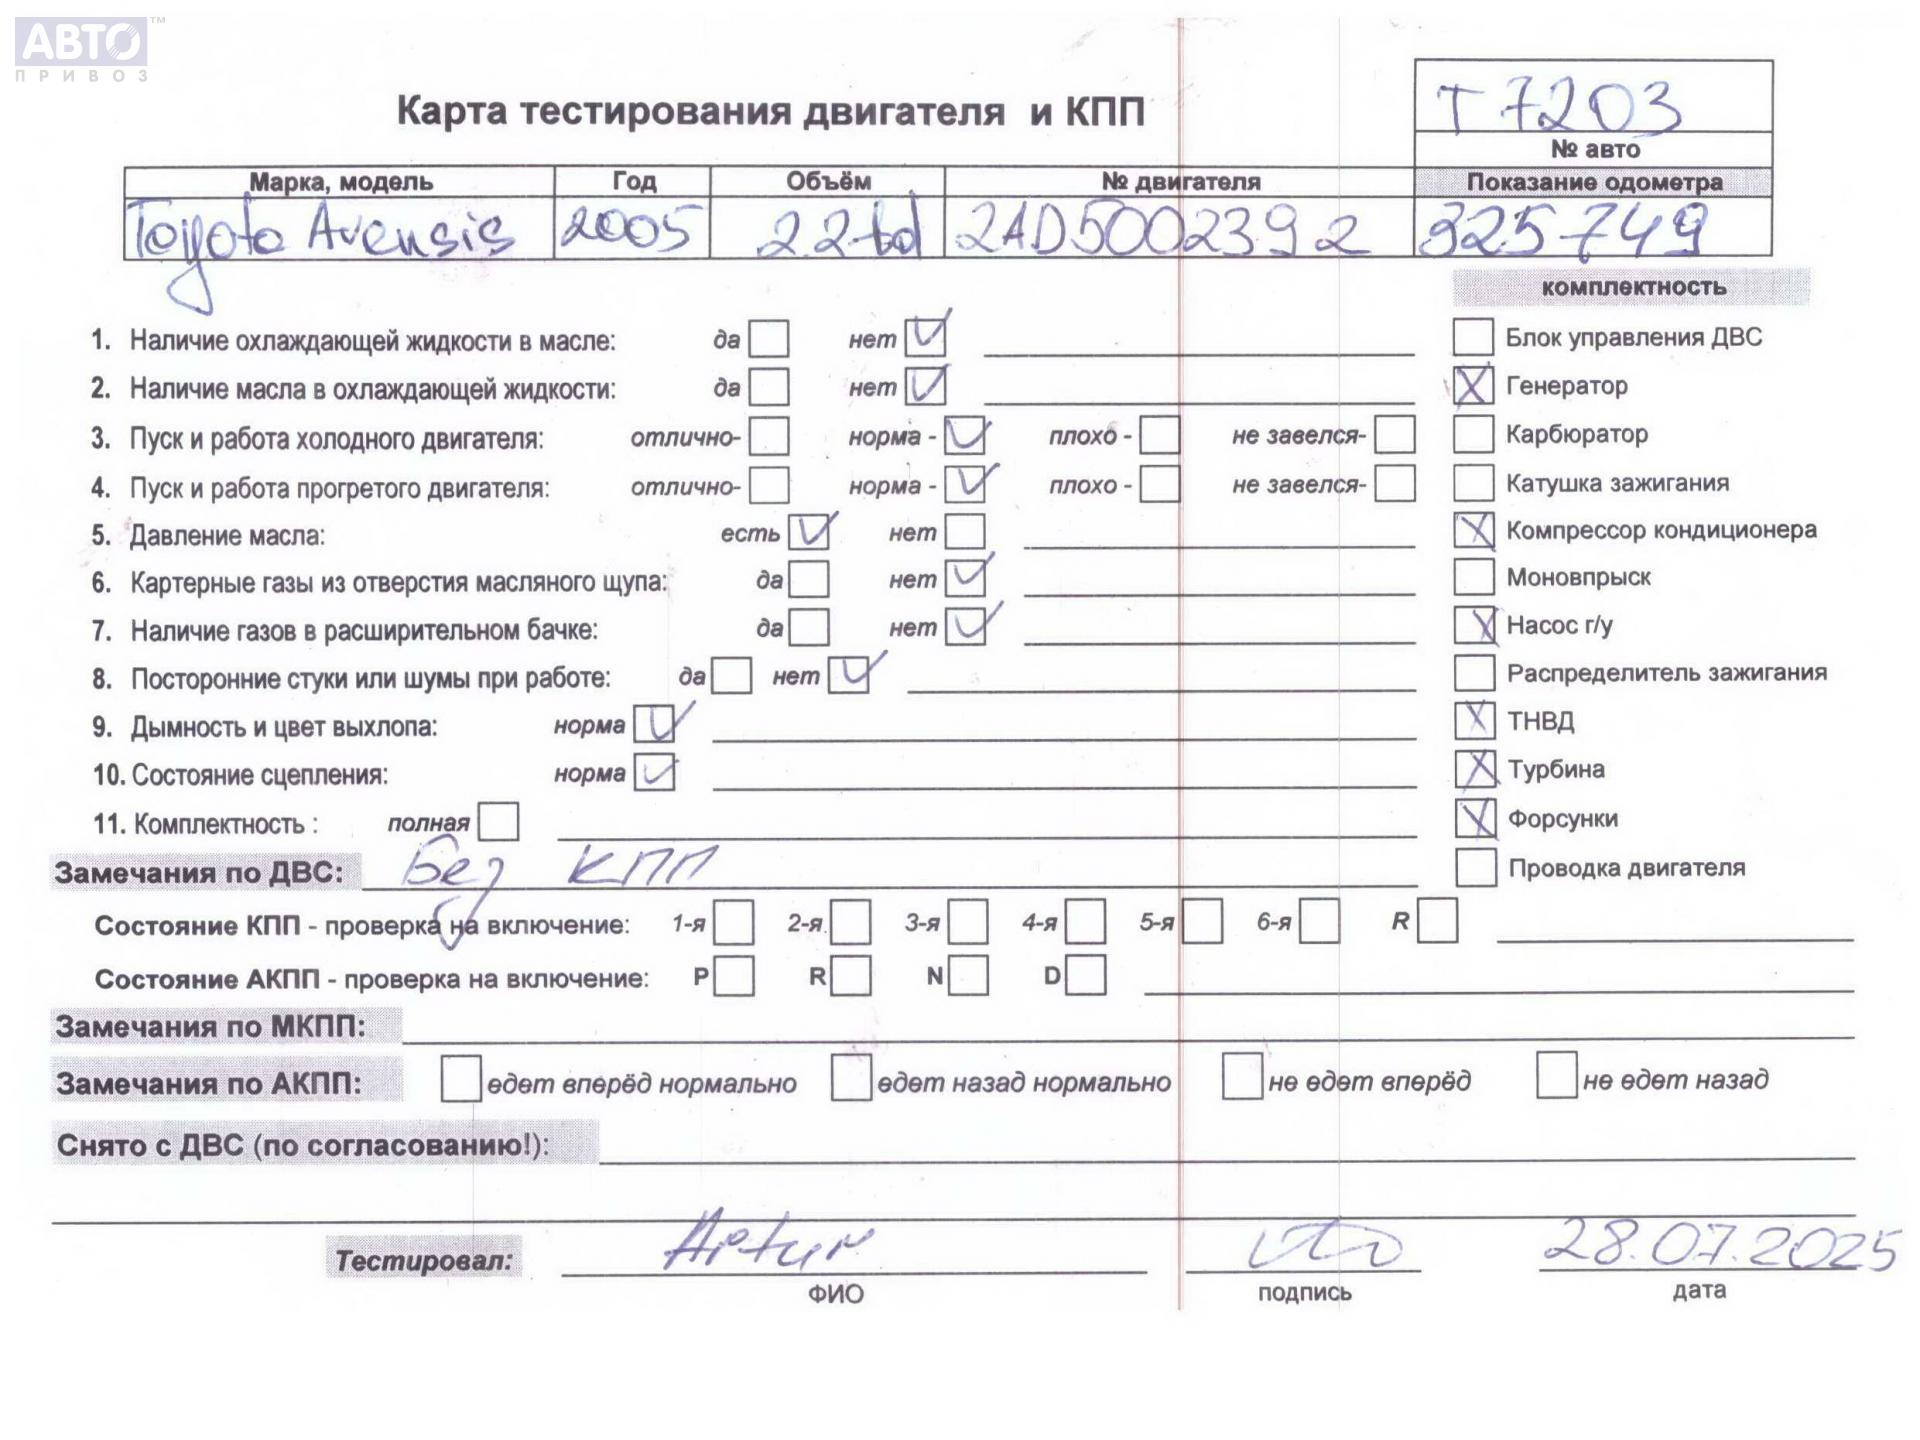 АВТО™
ПРИВОЗ
Карта тестирования двигателя и КПП
Т 7203
№ авто
Марка, модель Год Объём № двигателя Показание одометра
Toyota Avensis 2005 2.2 td 2AD5002392 325749
комплектность
1. Наличие охлаждающей жидкости в масле: да нет Блок управления ДВС
2. Наличие масла в охлаждающей жидкости: да нет Генератор
3. Пуск и работа холодного двигателя: отлично- норма - плохо - не завелся- Карбюратор
4. Пуск и работа прогретого двигателя: отлично- норма - плохо - не завелся- Катушка зажигания
5. Давление масла: есть нет Компрессор кондиционера
6. Картерные газы из отверстия масляного щупа: да нет Моновпрыск
7. Наличие газов в расширительном бачке: да нет Насос г/у
8. Посторонние стуки или шумы при работе: да нет Распределитель зажигания
9. Дымность и цвет выхлопа: норма ТНВД
10. Состояние сцепления: норма Турбина
11. Комплектность : полная Форсунки
Замечания по ДВС: Без КПП Проводка двигателя
Состояние КПП - проверка на включение: 1-я 2-я 3-я 4-я 5-я 6-я R
Состояние АКПП - проверка на включение: P R N D
Замечания по МКПП:
Замечания по АКПП: едет вперёд нормально едет назад нормально не едет вперёд не едет назад
Снято с ДВС (по согласованию!):
Тестировал: Artur 28.07.2025
ФИО подпись дата